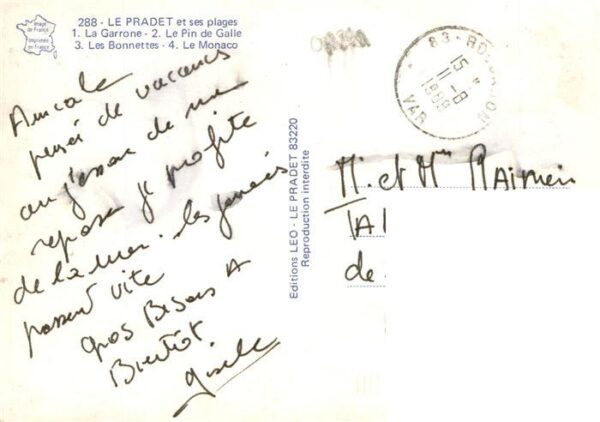 Image de France
Imprimée en France
288 - LE PRADET et ses plages
1. La Garrone - 2. Le Pin de Galle
3. Les Bonnettes - 4. Le Monaco
Amicale
pensée de vacances
ou j'essaie de me
reposer je profite
de la mer. les journées
passent vite
gros Bisous A
Bientôt.
Gisèle
Editions LEO - LE PRADET 83220
Reproduction interdite
83 -
15 H
11-8
1988
VAR
M. et Mme
de